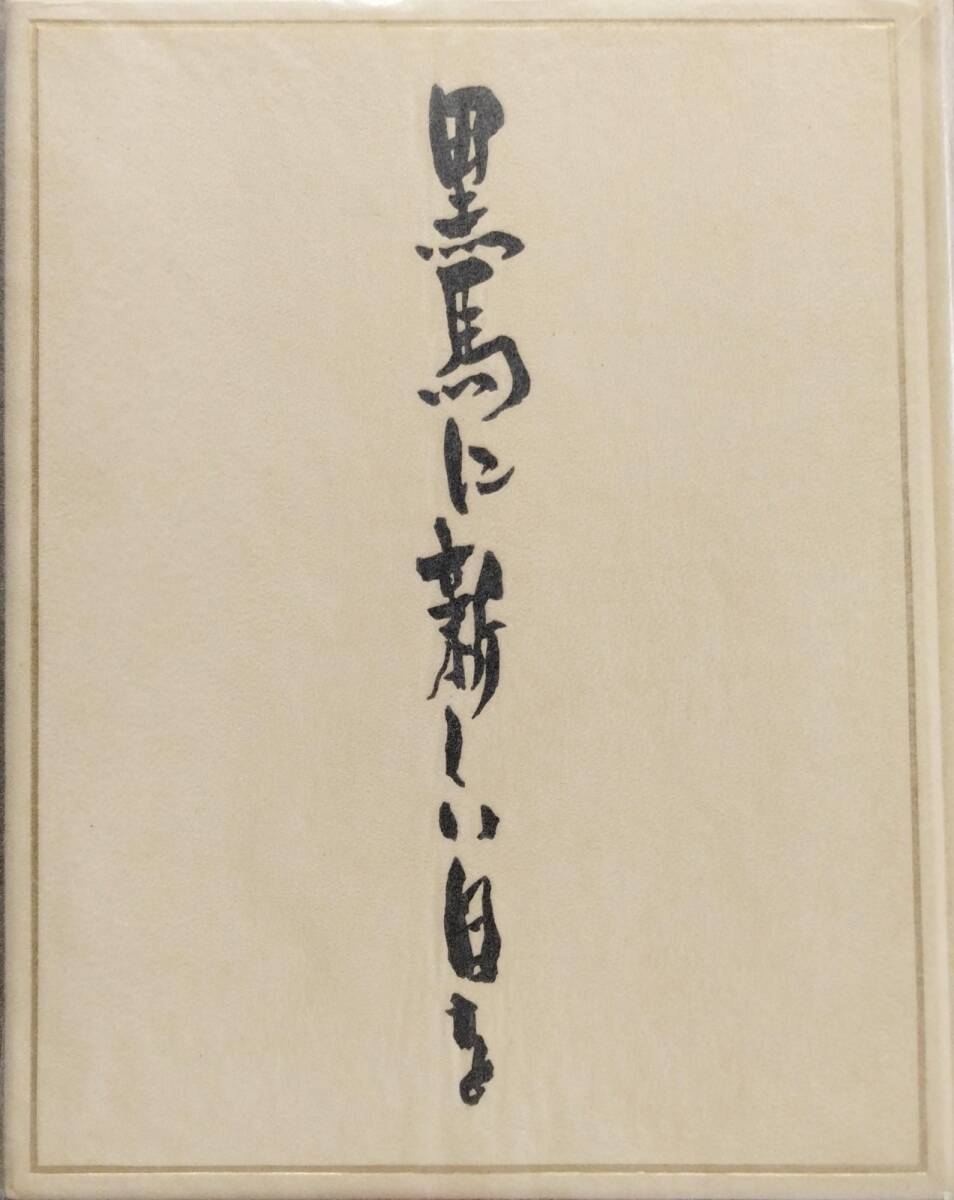 黒馬に新しい日を